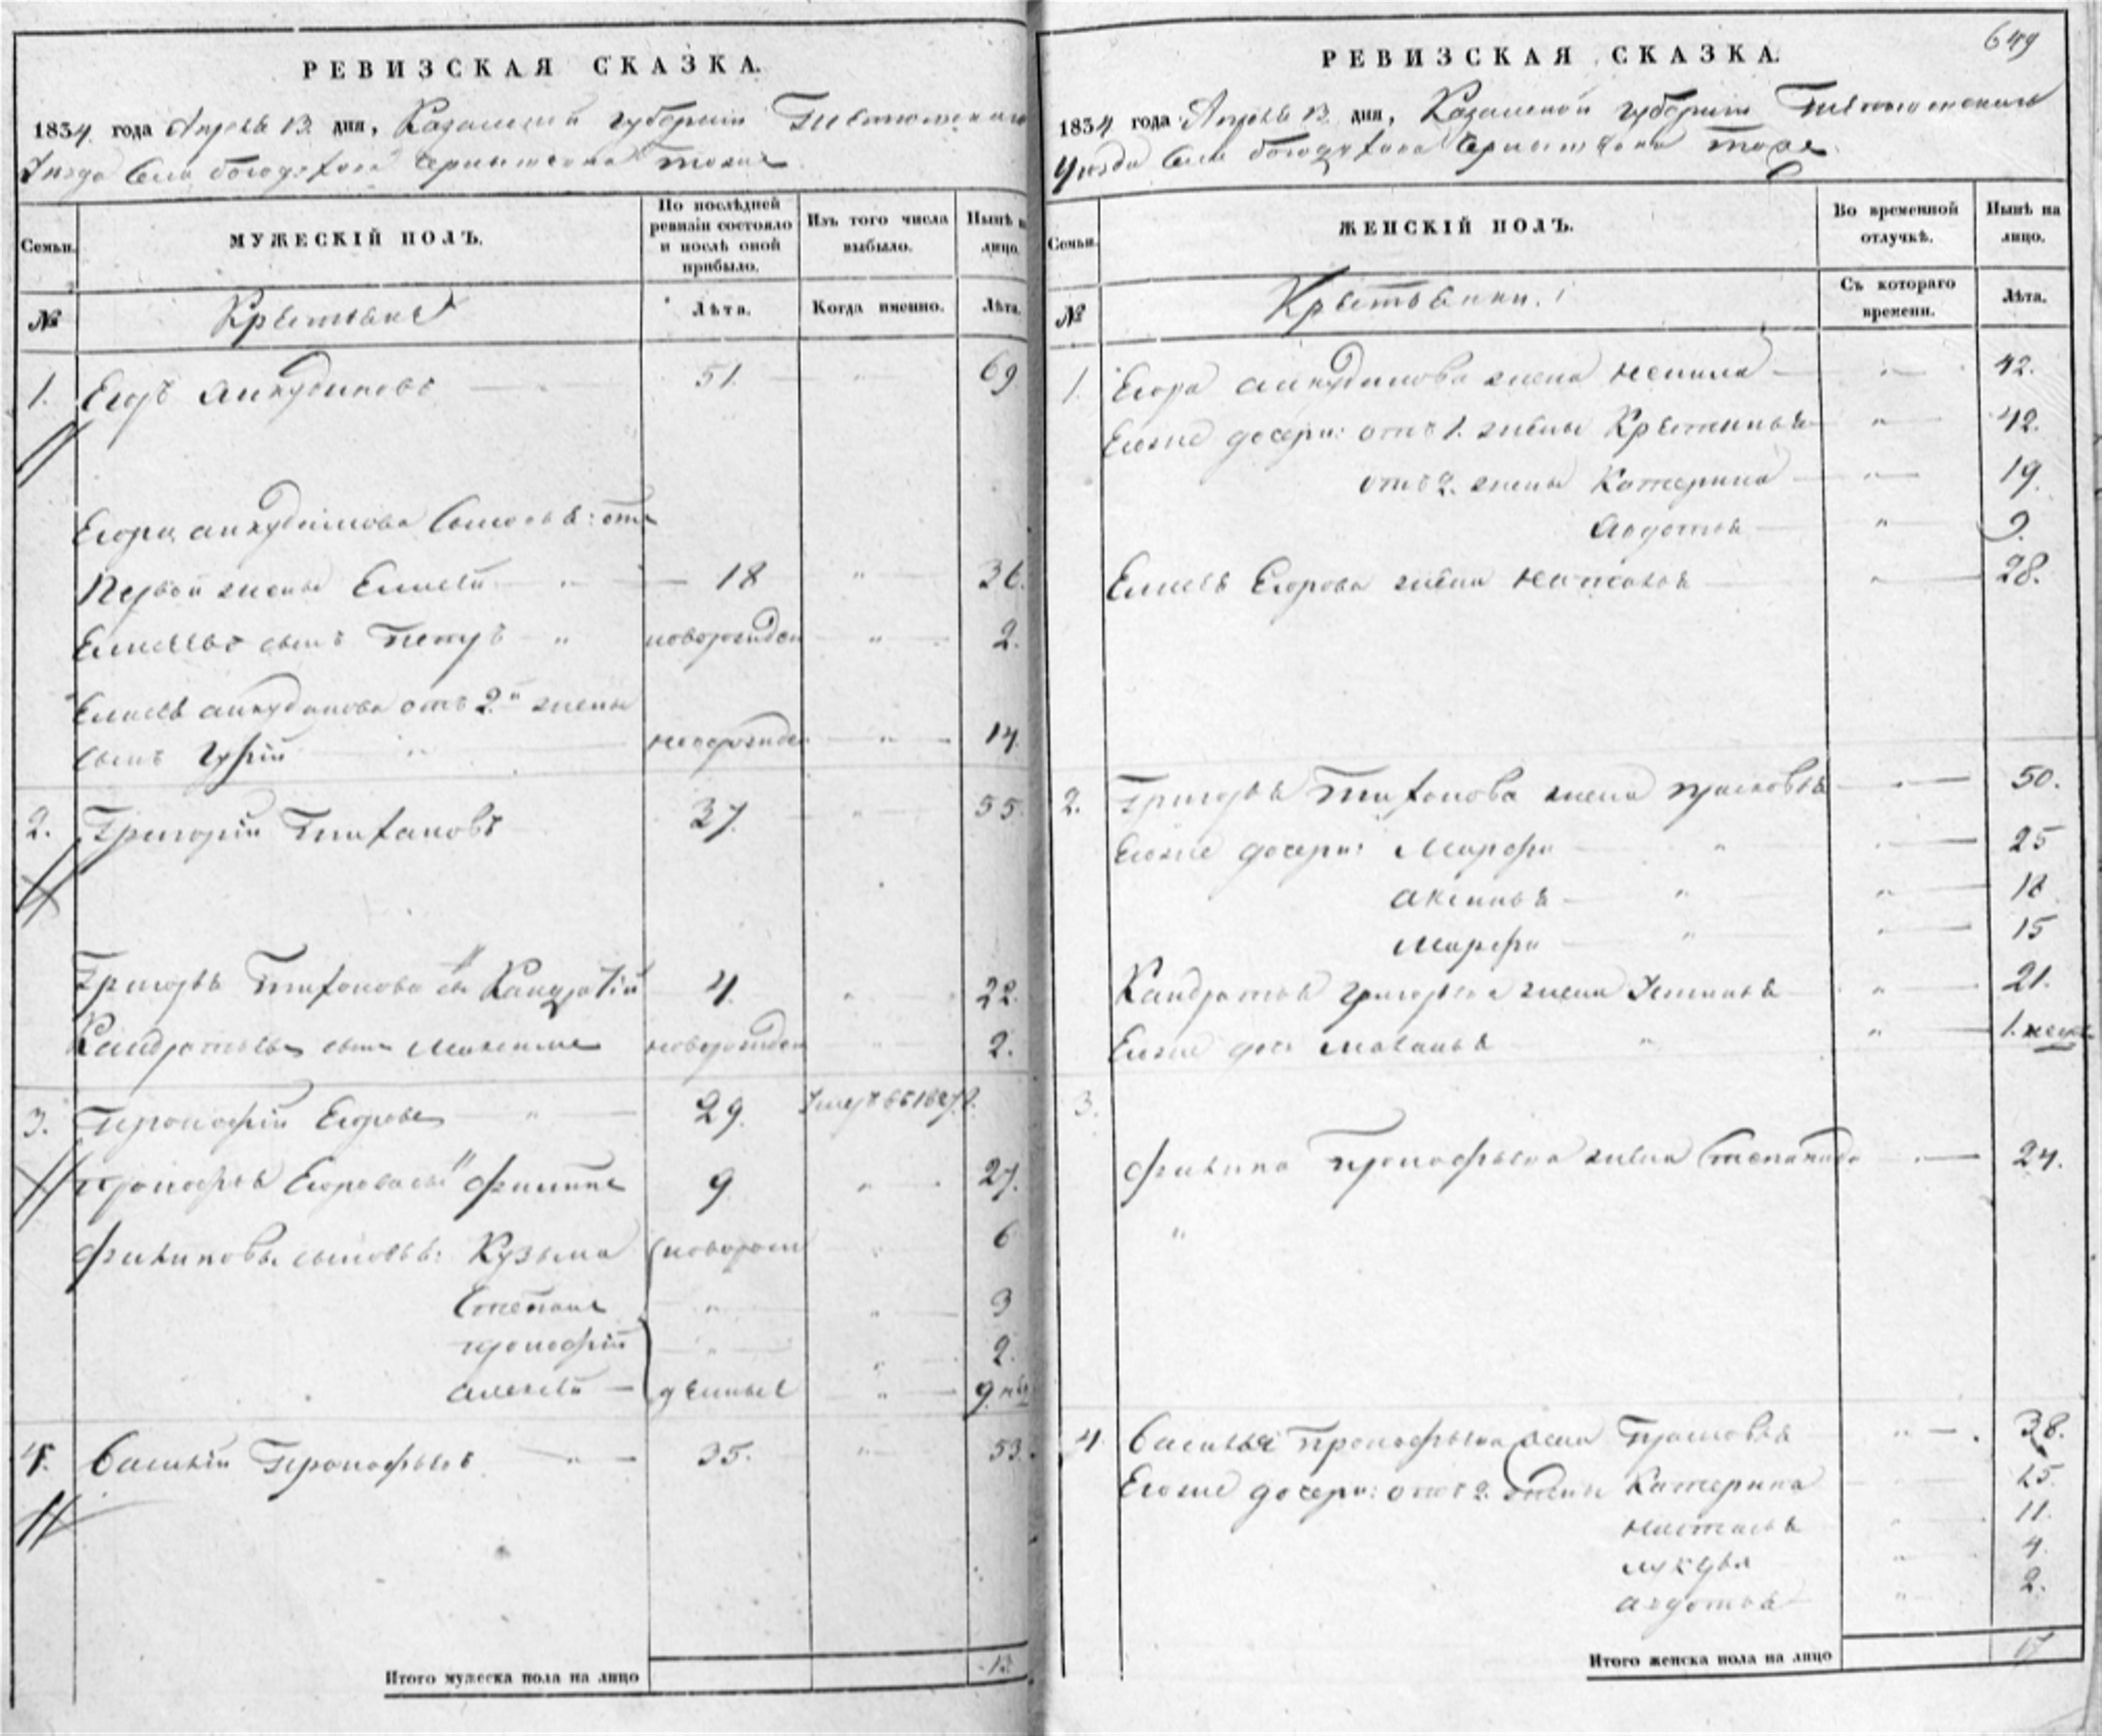 РЕВИЗСКАЯ СКАЗКА.
1834 года Апреля 13 дня, Казанской губернии
Уезда Села Богодухова Чернышона тожъ
Семьи.
МУЖЕСКІЙ ПОЛЪ.
По послѣдней ревизіи состояло и послѣ оной прибыло.
Изъ того числа выбыло.
Нынѣ на лицо.
№
Крестьяне
Лѣта.
Когда именно.
Лѣта.
1. Егоръ Анкудиновъ 51. " 69
Егора анкудинова Сыновья: отъ
Первой жены Елисей " 18 " 36.
Елисеевъ сынъ Петръ " новорожден " 2.
анкудинова отъ 2й жены
сынъ Гурій " новорожден " 14.
2. Григорій Тихановъ 37. " 55
Григорья Тихонова сы Кандратій 4. " 22.
Кандратьевъ сынъ Максимъ новорожден " 2.
3. Прокофій Егоровъ " 29. Умеръ въ 1827.
Прокофья Егорова сы Филипъ 9 " 27.
Филиповы сыновья: Кузьма новорож " 6
Степанъ " " 3
прокофій " " 2.
алексей — денные " 9 не
4. Василій Прокофьевъ " 35. " 53.
Итого мужеска пола на лицо 13
649
РЕВИЗСКАЯ СКАЗКА.
1834 года Апреля 13 дня, Казанской губернии
Уезда Села Богодухова Чернышона тоже
Семьи.
ЖЕНСКІЙ ПОЛЪ.
Во временной отлучкѣ.
Нынѣ на лицо.
№
Крестьянки.
Съ котораго времени.
Лѣта.
1. Егора анкудинова жена ненила " 42.
Егоже дочери: отъ 1. жены Крестинья " 42.
отъ 2. жены Катерина " 19.
Авдотья " 9.
Елисея Егорова жена Наталья " 28.
2. Григорья Тихонова жена прасковья " 50.
Егоже дочери: Марфа " " 25
аксинья " " 18
Марфа " " 15
Кандратья григорьева жена Устинья " 21.
Егоже доч маланья " " 1. нед
3.
Филипа Прокофьева жена Степанида " 24.
"
4 Василья Прокофьева жена Прасковья " 38.
Егоже дочери: отъ 2. жены Катерина 15.
наталья " 11.
лукерья " 4.
авдотья " 2.
Итого женска пола на лицо 17